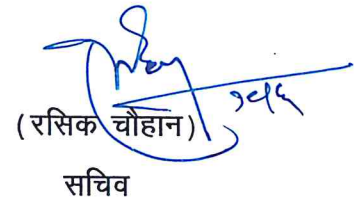 (रसिक चौहान)
सचिव